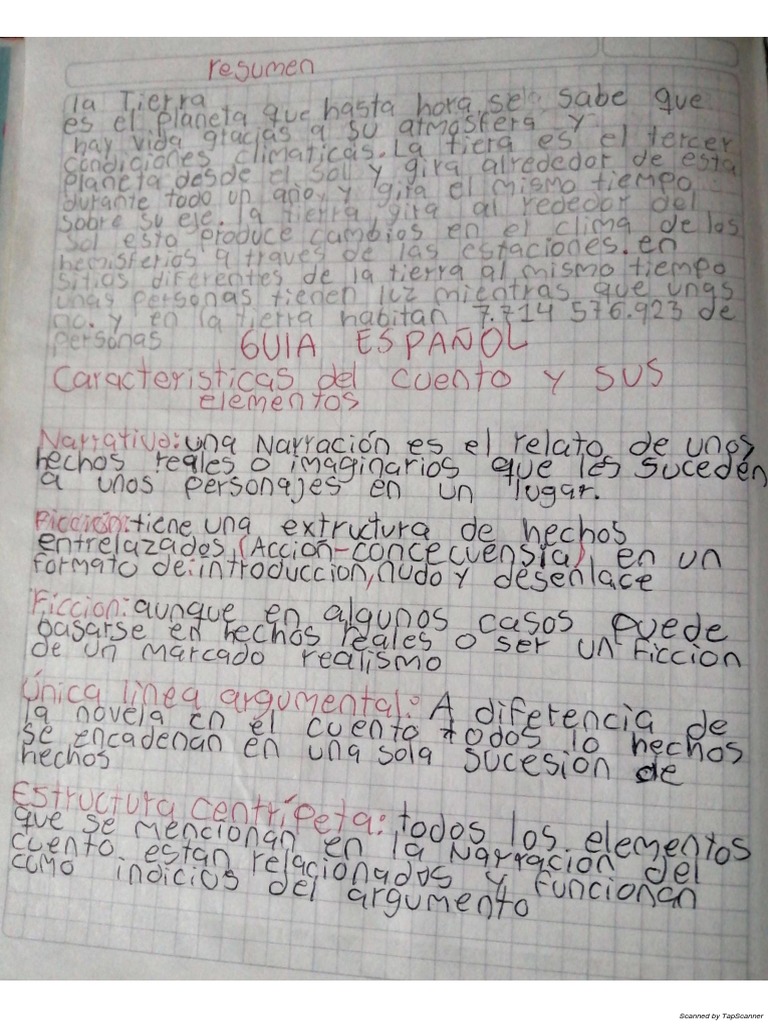 resumen
la Tierra
es el planeta que hasta hora se sabe que
hay vida gracias a su atmosfera y
condiciones climaticas. La tiera es el tercer
planeta desde el sol y gira alrededor de esta
durante todo un año y gira el mismo tiempo
sobre su eje. la tierra gira al rededor del
sol esto produce cambios en el clima de los
hemisferios a traves de las estaciones. en
sitios diferentes de la tierra al mismo tiempo
unas personas tienen luz mientras que unas
no. y en la tierra habitan 7.714 576.923 de
personas
GUIA ESPAÑOL
Caracteristicas del cuento y sus
elementos
Narrativo: una Narración es el relato de unos
hechos reales o imaginarios que les suceden
a unos personajes en un lugar.
Ficcion: tiene una extructura de hechos
entrelazados (Acción-concecuensia) en un
formato de: introduccion, nudo y desenlace
Ficcion: aunque en algunos casos puede
basarse en hechos reales o ser un ficcion
de un marcado realismo
Única linea argumental: A diferencia de
la novela en el cuento todos lo hechos
se encadenan en una sola sucesión de
hechos
Estructura centrípeta: todos los elementos
que se mencionan en la Narración del
cuento estan relacionados y funcionan
como indicios del argumento
Scanned by TapScanner